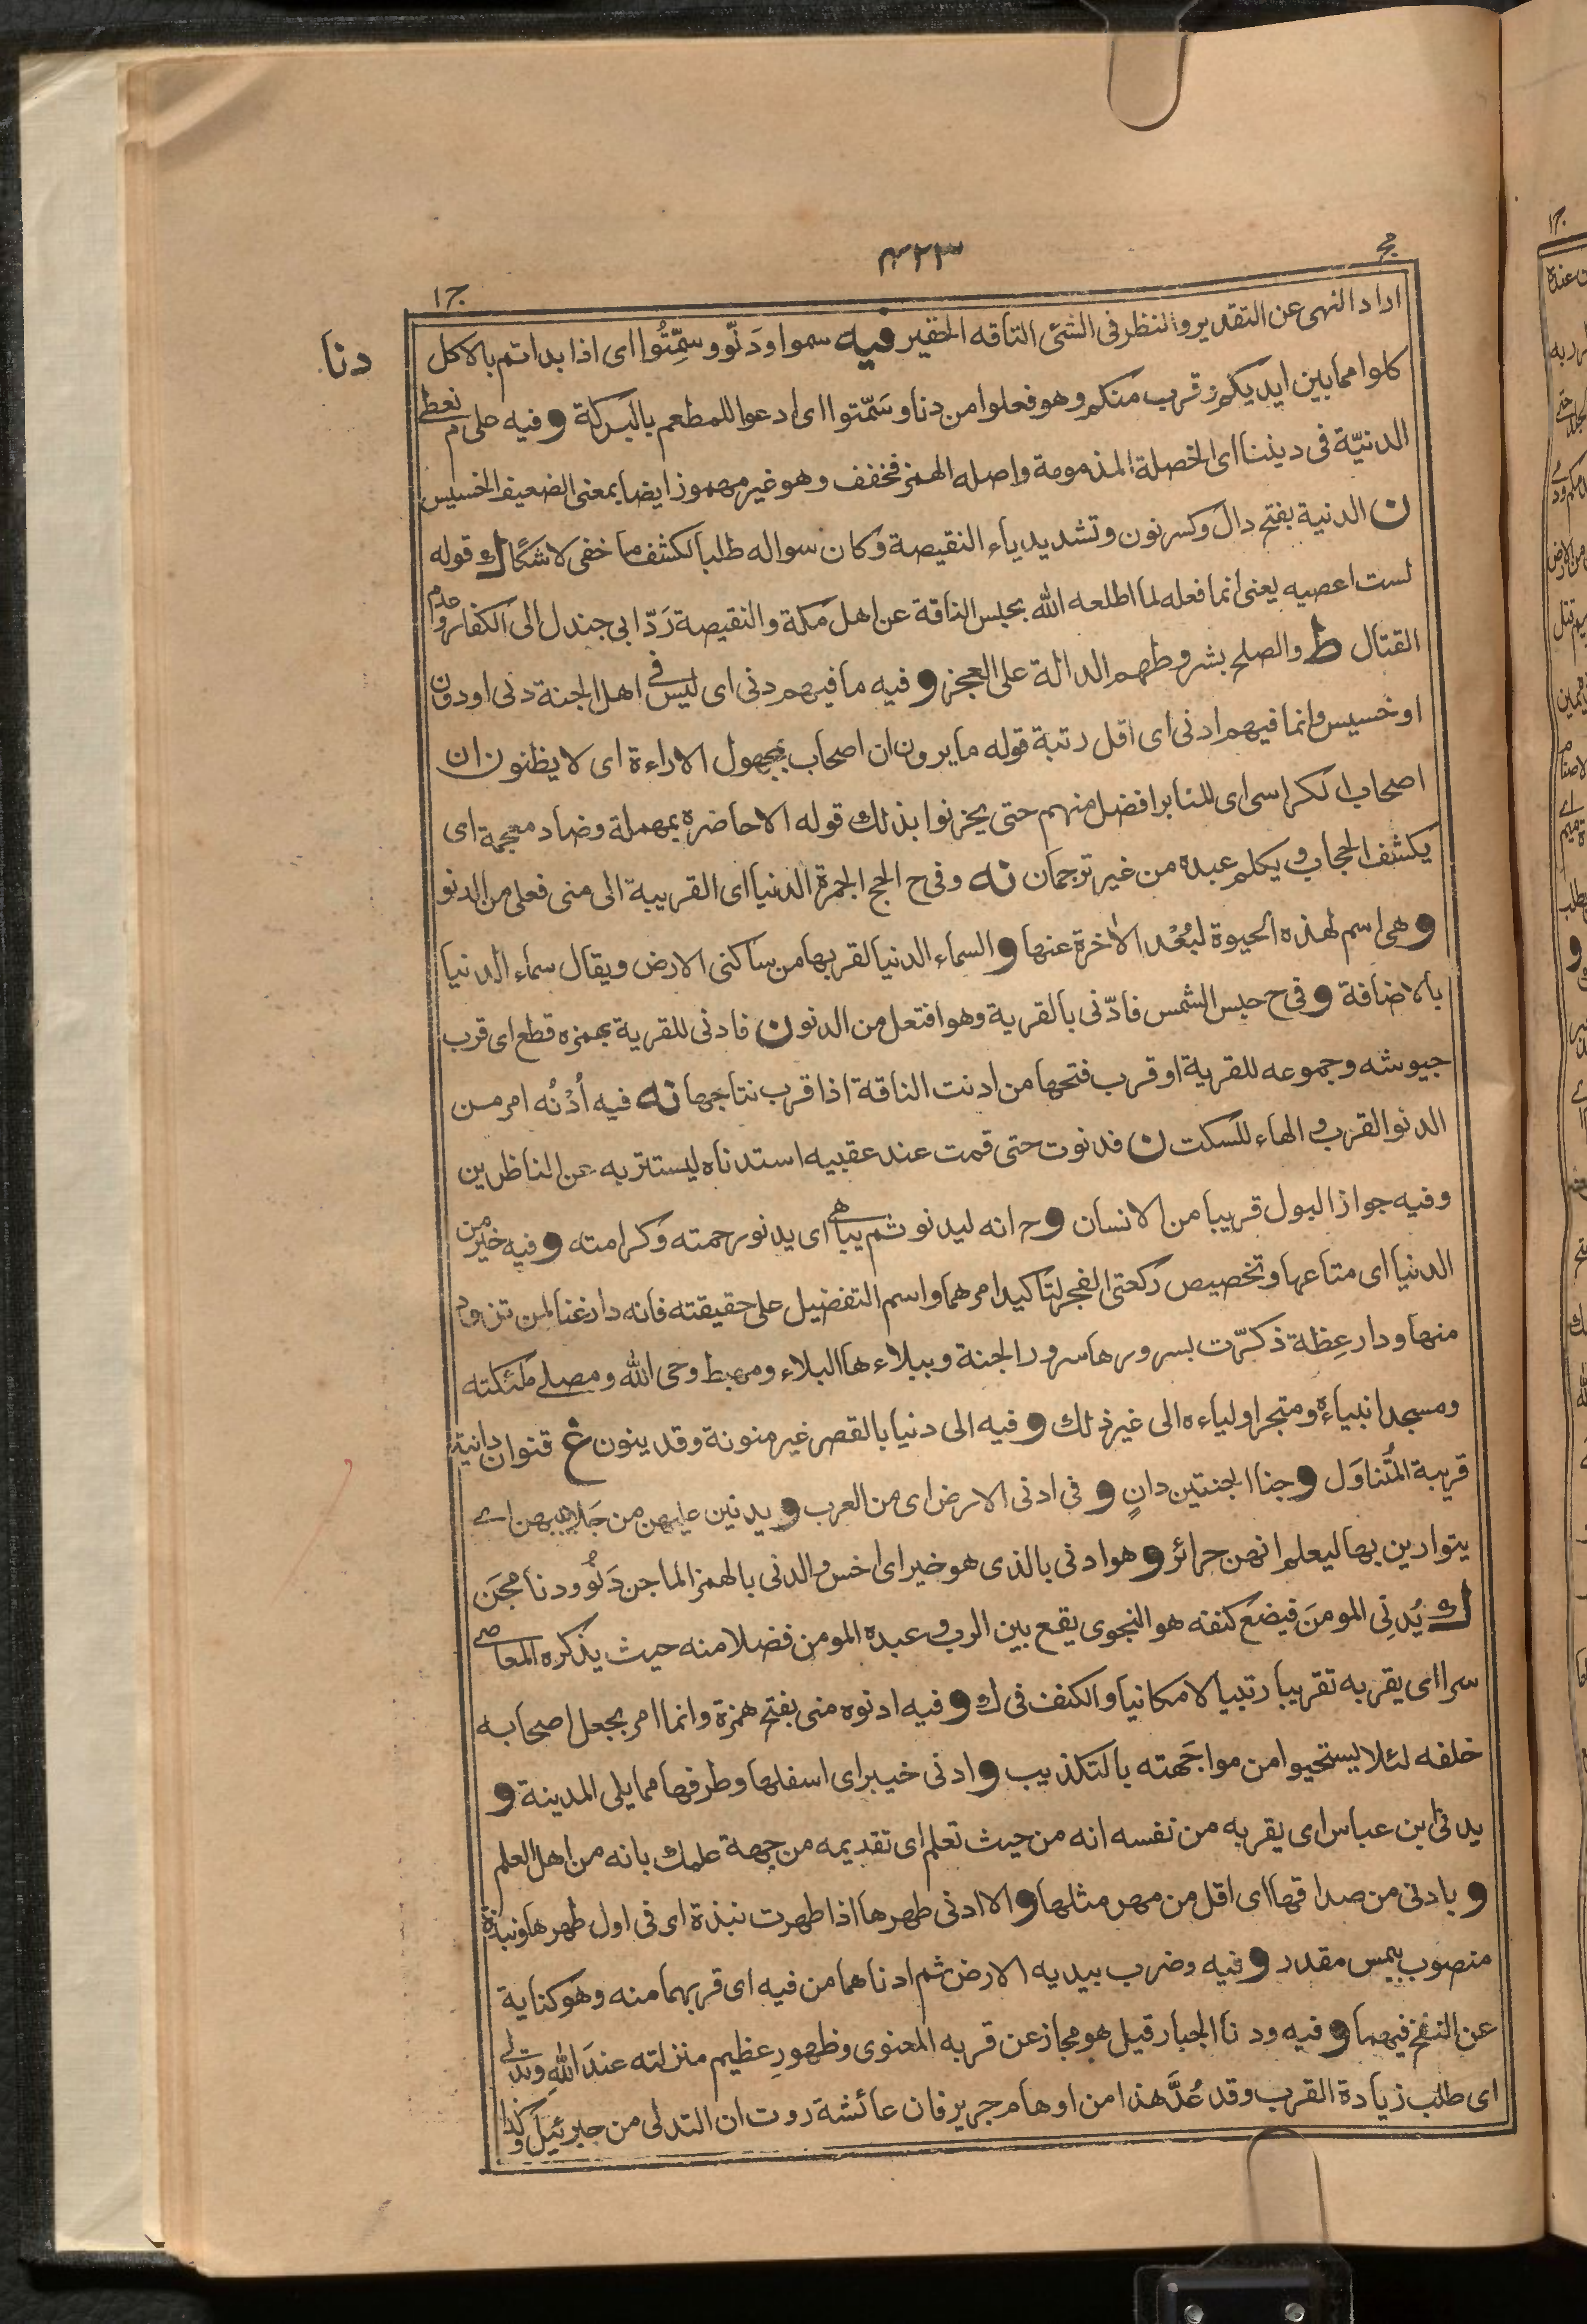 مج ٤٢٣ ج١
دنا
اراد النهى عن التقدير والنظر فى الشئ التافه الحقير فيه سموا ودَنّوا وسمّتُوا اى اذا بداتم بالاكل
كلوا مما بين ايديكم وقرب منكم وهو فعلوا من دنا وسَمّتوا اى ادعوا للمطعم بالبركة و فيه على م نعطى
الدنيّة فى ديننا اى الخصلة المذمومة واصله الهمز فخفف وهو غير مهموز ايضا بمعنى الضعيف الخسيس
ن الدنية بفتح دال وكسر نون وتشديد ياء النقيصة وكان سواله طلبا لكشف ما خفى لا شكا ك قوله
لست اعصيه يعنى انما فعله لما اطلعه الله بحبس الناقة عن اهل مكة والنقيصة رَدّ ابى جندل الى الكفار وعدم
القتال ط والصلح بشروطهم الدالة على العجز و فيه ما فيهم دنى اى ليس فى اهل الجنة دنى او دون
او خسيس وانما فيهم ادنى اى اقل رتبة قوله ما يرون ان اصحاب بمجهول الاراءة اى لا يظنون ان
اصحاب الكراسى اى المنابر افضل منهم حتى يحزنوا بذلك قوله الا حاضره بمهملة وضاد معجمة اى
يكشف الحجاب ويكلم عبده من غير ترجمان نه وفى ح الحج الجمرة الدنيا اى القريبة الى منى فعلى من الدنو
و هى اسم لهذه الحيوة لبُعْد الاخرة عنها و السماء الدنيا لقربها من ساكنى الارض ويقال سماء الدنيا
بالاضافة و فى ح حبس الشمس فادّنى بالقرية وهو افتعل من الدنو ن فادنى للقرية بهمزه قطع اى قرب
جيوشه وجموعه للقرية او قرب فتحها من ادنت الناقة اذا قرب نتاجها نه فيه اُدْنُه امر من
الدنو القرب والهاء للسكت ن فدنوت حتى قمت عند عقبيه استدناه ليستتر به عن الناظرين
وفيه جواز البول قريبا من الانسان و ح انه ليدنو ثم يباهى اى يدنو رحمته وكرامته و فيه خير من
الدنيا اى متاعها وتخصيص ركعتى الفجر لتاكيد امرهما واسم التفضيل على حقيقته فانه دار غنا لمن تزود
منها ودار عِظة ذكّرت بسرورها سرور الجنة وببلاءها البلاء ومهبط وحى الله ومصلى ملئكته
ومسجد انبياءه ومتجر اولياءه الى غير ذلك و فيه الى دنيا بالقصر غير منونة وقد ينون غ قنوان دانية
قريبة المُتناوَل و جنا الجنتين دانٍ و فى ادنى الارض اى من العرب و يدنين عليهن من جَلابيبهن اى
يتوارين بها ليعلم انهن حرائر و هو ادنى بالذى هو خير اى اخس والدنى بالهمز الماجن دَنُو ودنا مجن
ك يُدنِى المومنَ فيضع كنفه هو النجوى يقع بين الرب وعبده المومن فضلا منه حيث يذكره المعاصى
سرا اى يقربه تقريبا رتبيا لا مكانيا والكنف فى ك و فيه ادنوه منى بفتح همزة وانما امر بجعل اصحابه
خلفه لئلا يستحيوا من مواجَهته بالتكذيب و ادنى خيبر اى اسفلها وطرفها مما يلى المدينة و
يدنى ابن عباس اى يقربه من نفسه انه من حيث تعلم اى تقديمه من جهة علمك بانه من اهل العلم
و بادنى من صداقها اى اقل من مهر مثلها و الا ادنى طهرها اذا طهرت نبذة اى فى اول طهرها ونبذة
منصوب بيمس مقدر و فيه وضرب بيديه الارض ثم ادناهما من فيه اى قربهما منه وهو كناية
عن النفخ فيهما و فيه ودنا الجبار قيل هو مجاز عن قربه المعنوى وظهورِ عظيم منزلته عندَ اللهِ وتدلى
اى طلب زيادة القرب وقد عُدَّ هذا من اوهام جرير فان عائشة روت ان التدلى من جبرئيل وكذا